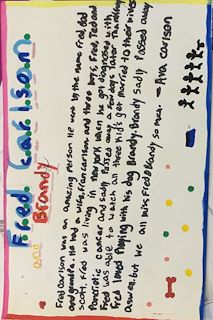 Fred Carlson
and Brandy
Fred Carlson was an amazing person. He went by the name Fred, dad
and grandpa. He had a wife, Fran carlson and three boys, Fred, Ted and
Scott. Fred was living in new york when he got diagnosed with
Pancriotic cancer and sadly Passed away a few days after Thanksgiving
Fred was able to watch all three kid's get married to their wives
Fred loved Playing with his dog Brandy. Brandy Sadly Passed away
as well. but we all miss Fred & Brandy so much. - Ava Carlson